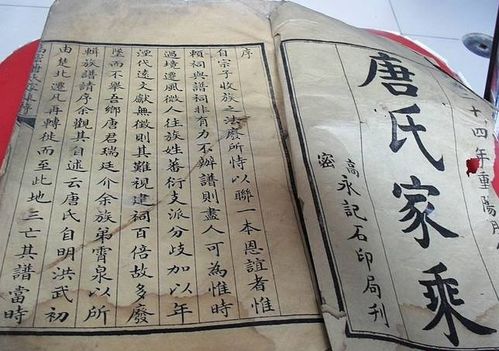 十四年重陽月
唐氏家乘
高密
永記石印局刊
序
自宗子收族之法廢所恃以聯一本恩誼者惟
賴祠與譜祠非有力不辦譜則盡人可為惟時
過境遷風微人往族姓蕃衍支派分歧加以年
湮代遠文獻無徵則其難視建祠百倍故多廢
墜而不舉吾鄉唐君瑞廷介余族弟霄泉以所
輯族譜請序余觀其自述云唐氏自明洪武初
由楚北遷凡再轉徙而至此地三亡其譜當時